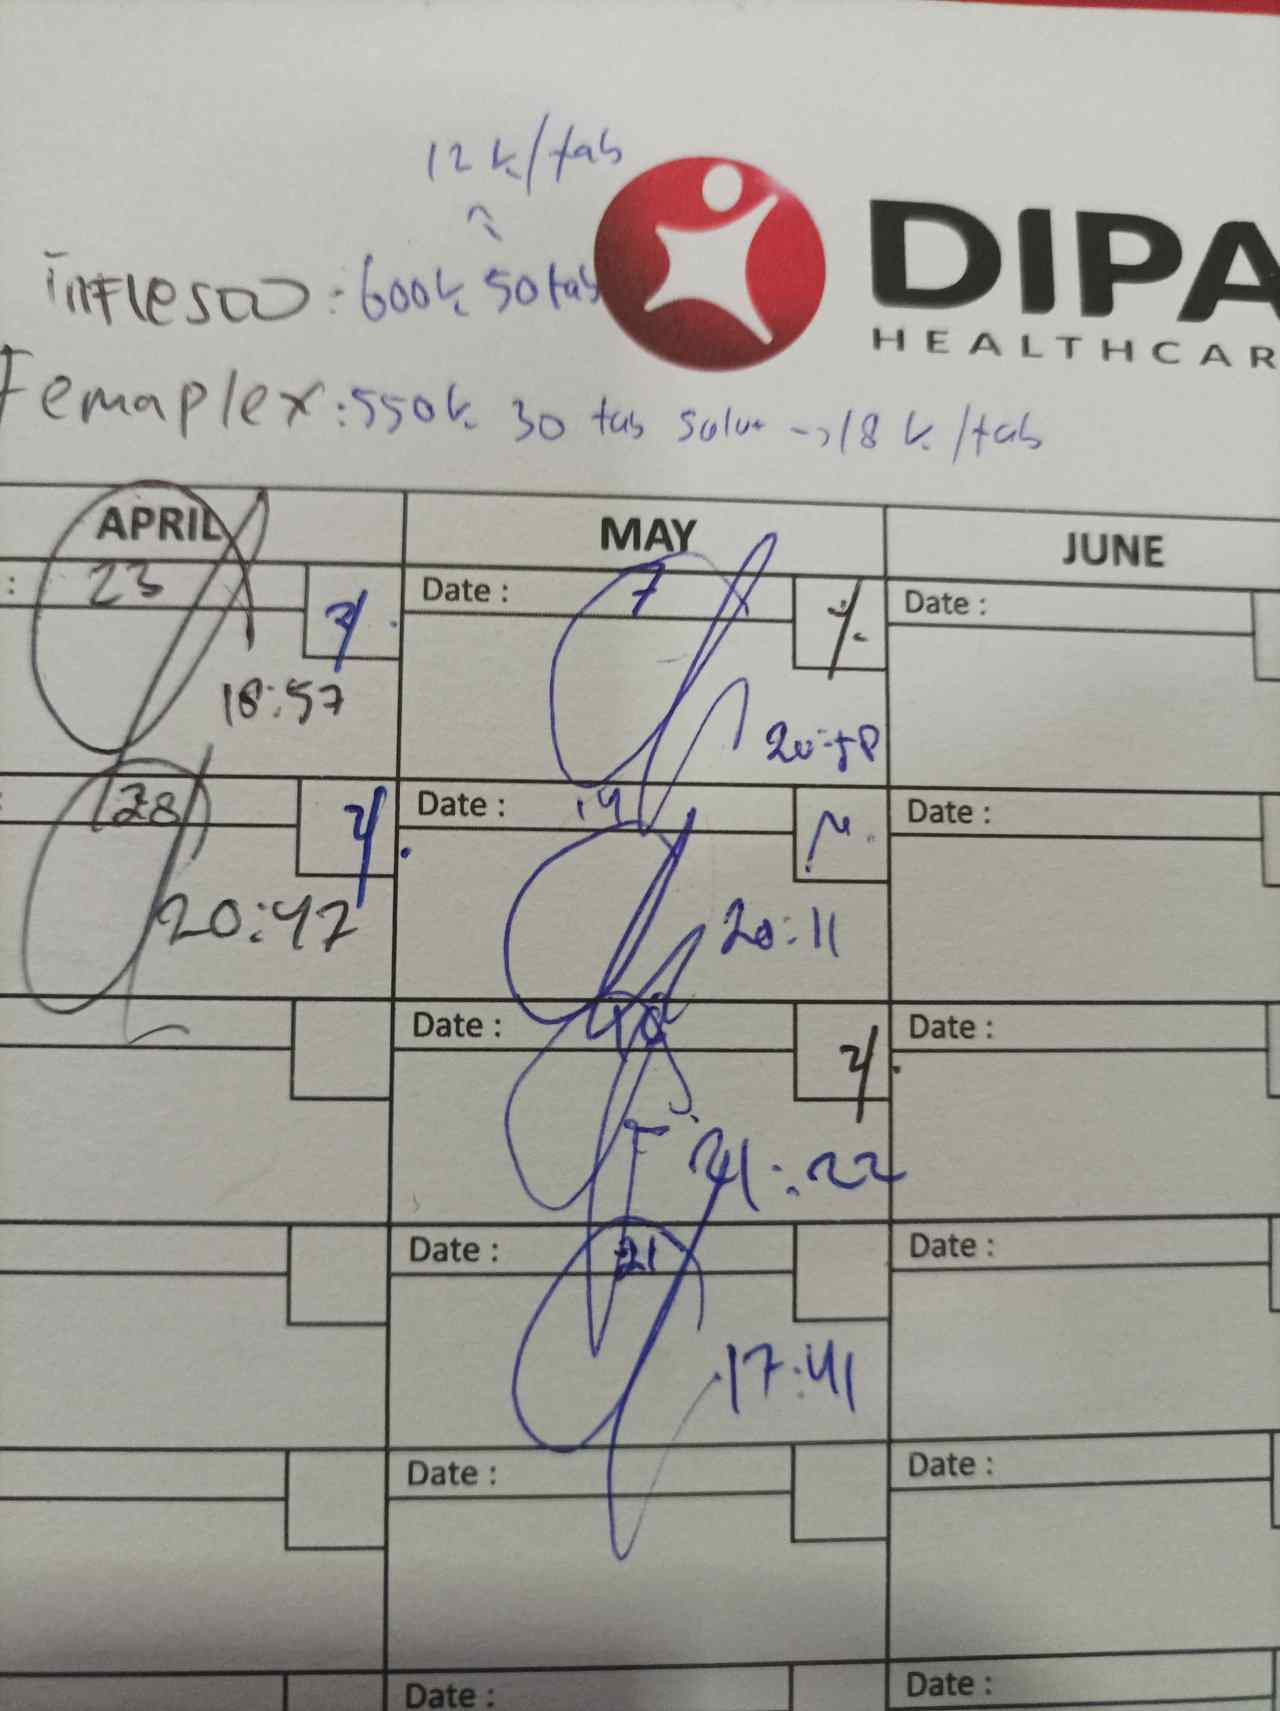 12 k/tab
inflesoo : 600k 50 tab
DIPA
HEALTHCAR
Femaplex : 550k 30 tab salut -> 18 k/tab
APRIL MAY JUNE
: 23 Date : 7 Date :
18:57
28 Date : 14 Date :
20:42 20:11
Date : Date :
21:22
Date : 21 Date :
17:41
Date : Date :
Date : Date :